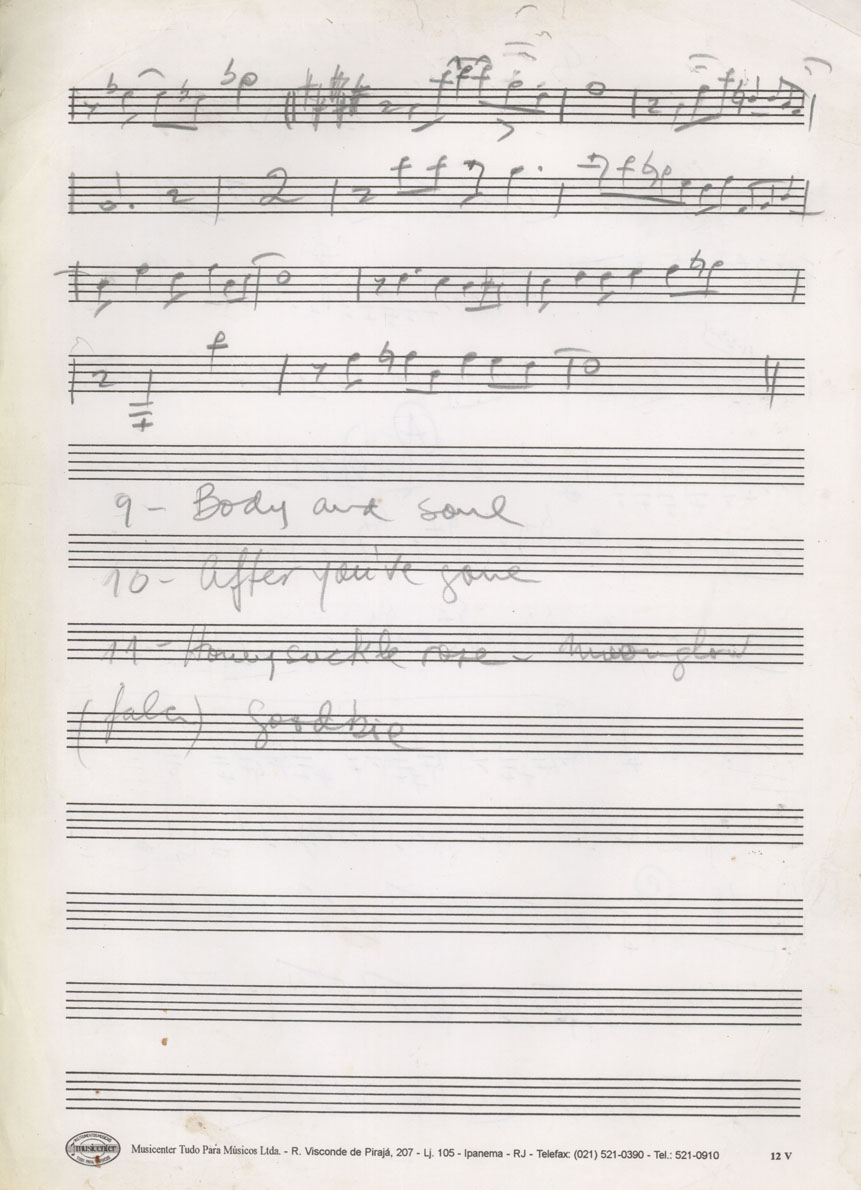 9 - Body and soul
10 - After you've gone
11 - Honeysuckle rose - moonglow
(fala) goodbie
musicenter
Musicenter Tudo Pára Músicos Ltda. - R. Visconde de Pirajá, 207 - Lj. 105 - Ipanema - RJ - Telefax: (021) 521-0390 - Tel.: 521-0910
12 V